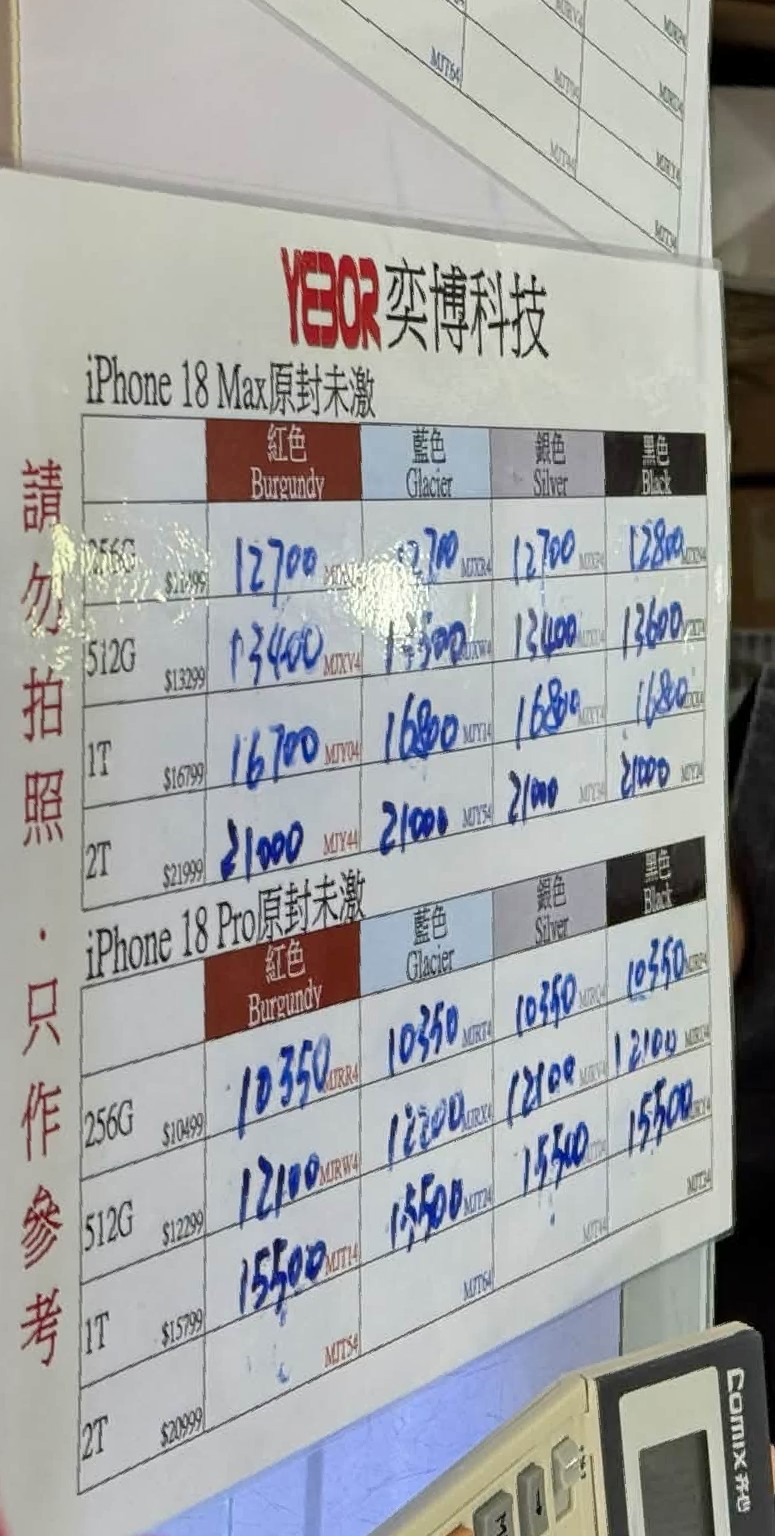 MJT64
YEBOR 奕博科技
iPhone 18 Max原封未激
紅色 藍色 銀色 黑色
Burgundy Glacier Silver Black
256G $11499 12700 12700 MJXR4 12700 12800
512G $13299 13400 MJXV4 13500 MJXW4 13400 13600
1T $16799 16700 MJY04 16800 MJY14 16800 16800
2T $21999 21000 MJY44 21000 MJY54 21000 MJY34 21000 MJY24
iPhone 18 Pro原封未激
紅色 藍色 銀色 黑色
Burgundy Glacier Silver Black
256G $10499 10350 MJRR4 10350 MJRT4 10350 MJRQ4 10350 MJRP4
512G $12299 12100 MJRW4 12200 MJRX4 12100 MJRV4 12100 MJRU4
1T $15799 15500 MJT14 15500 MJT24 15500 15500
2T $20999 MJT54 MJT64 MJT44 MJT34
請勿拍照．只作參考
Comix
3